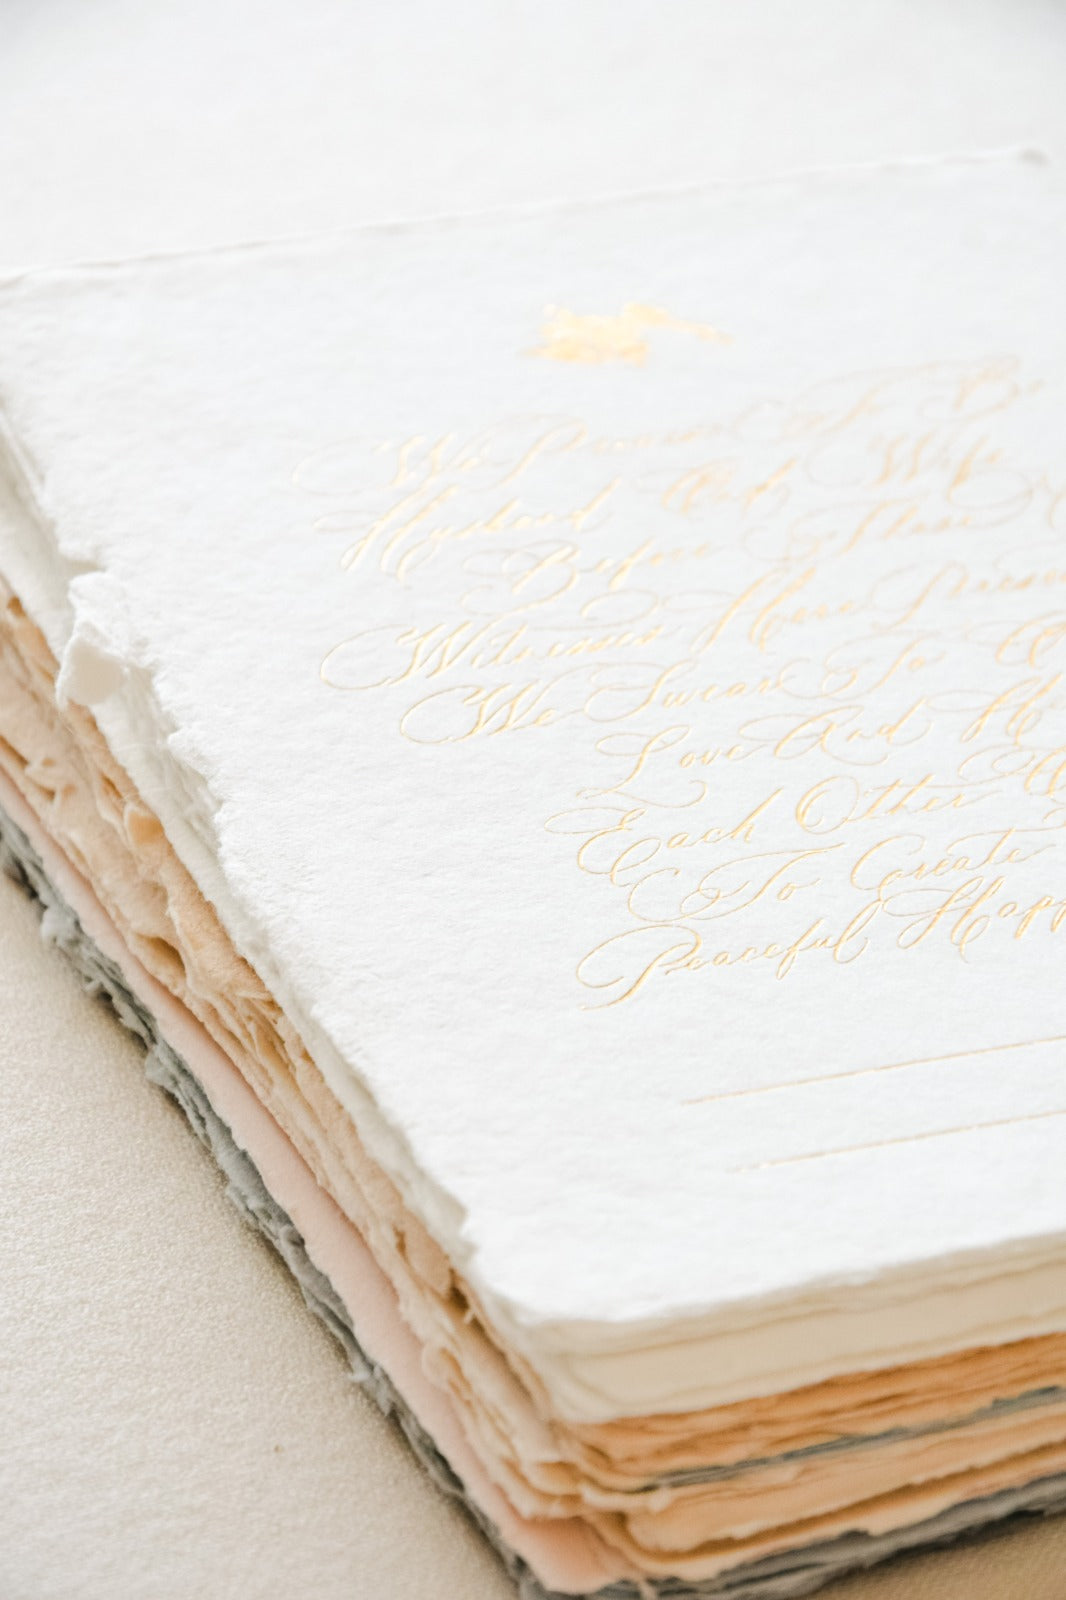 We Promise To Be
Husband And Wife
Before These
Witnesses Here Present
We Swear To
Love And
Each Other
To Create
Peaceful